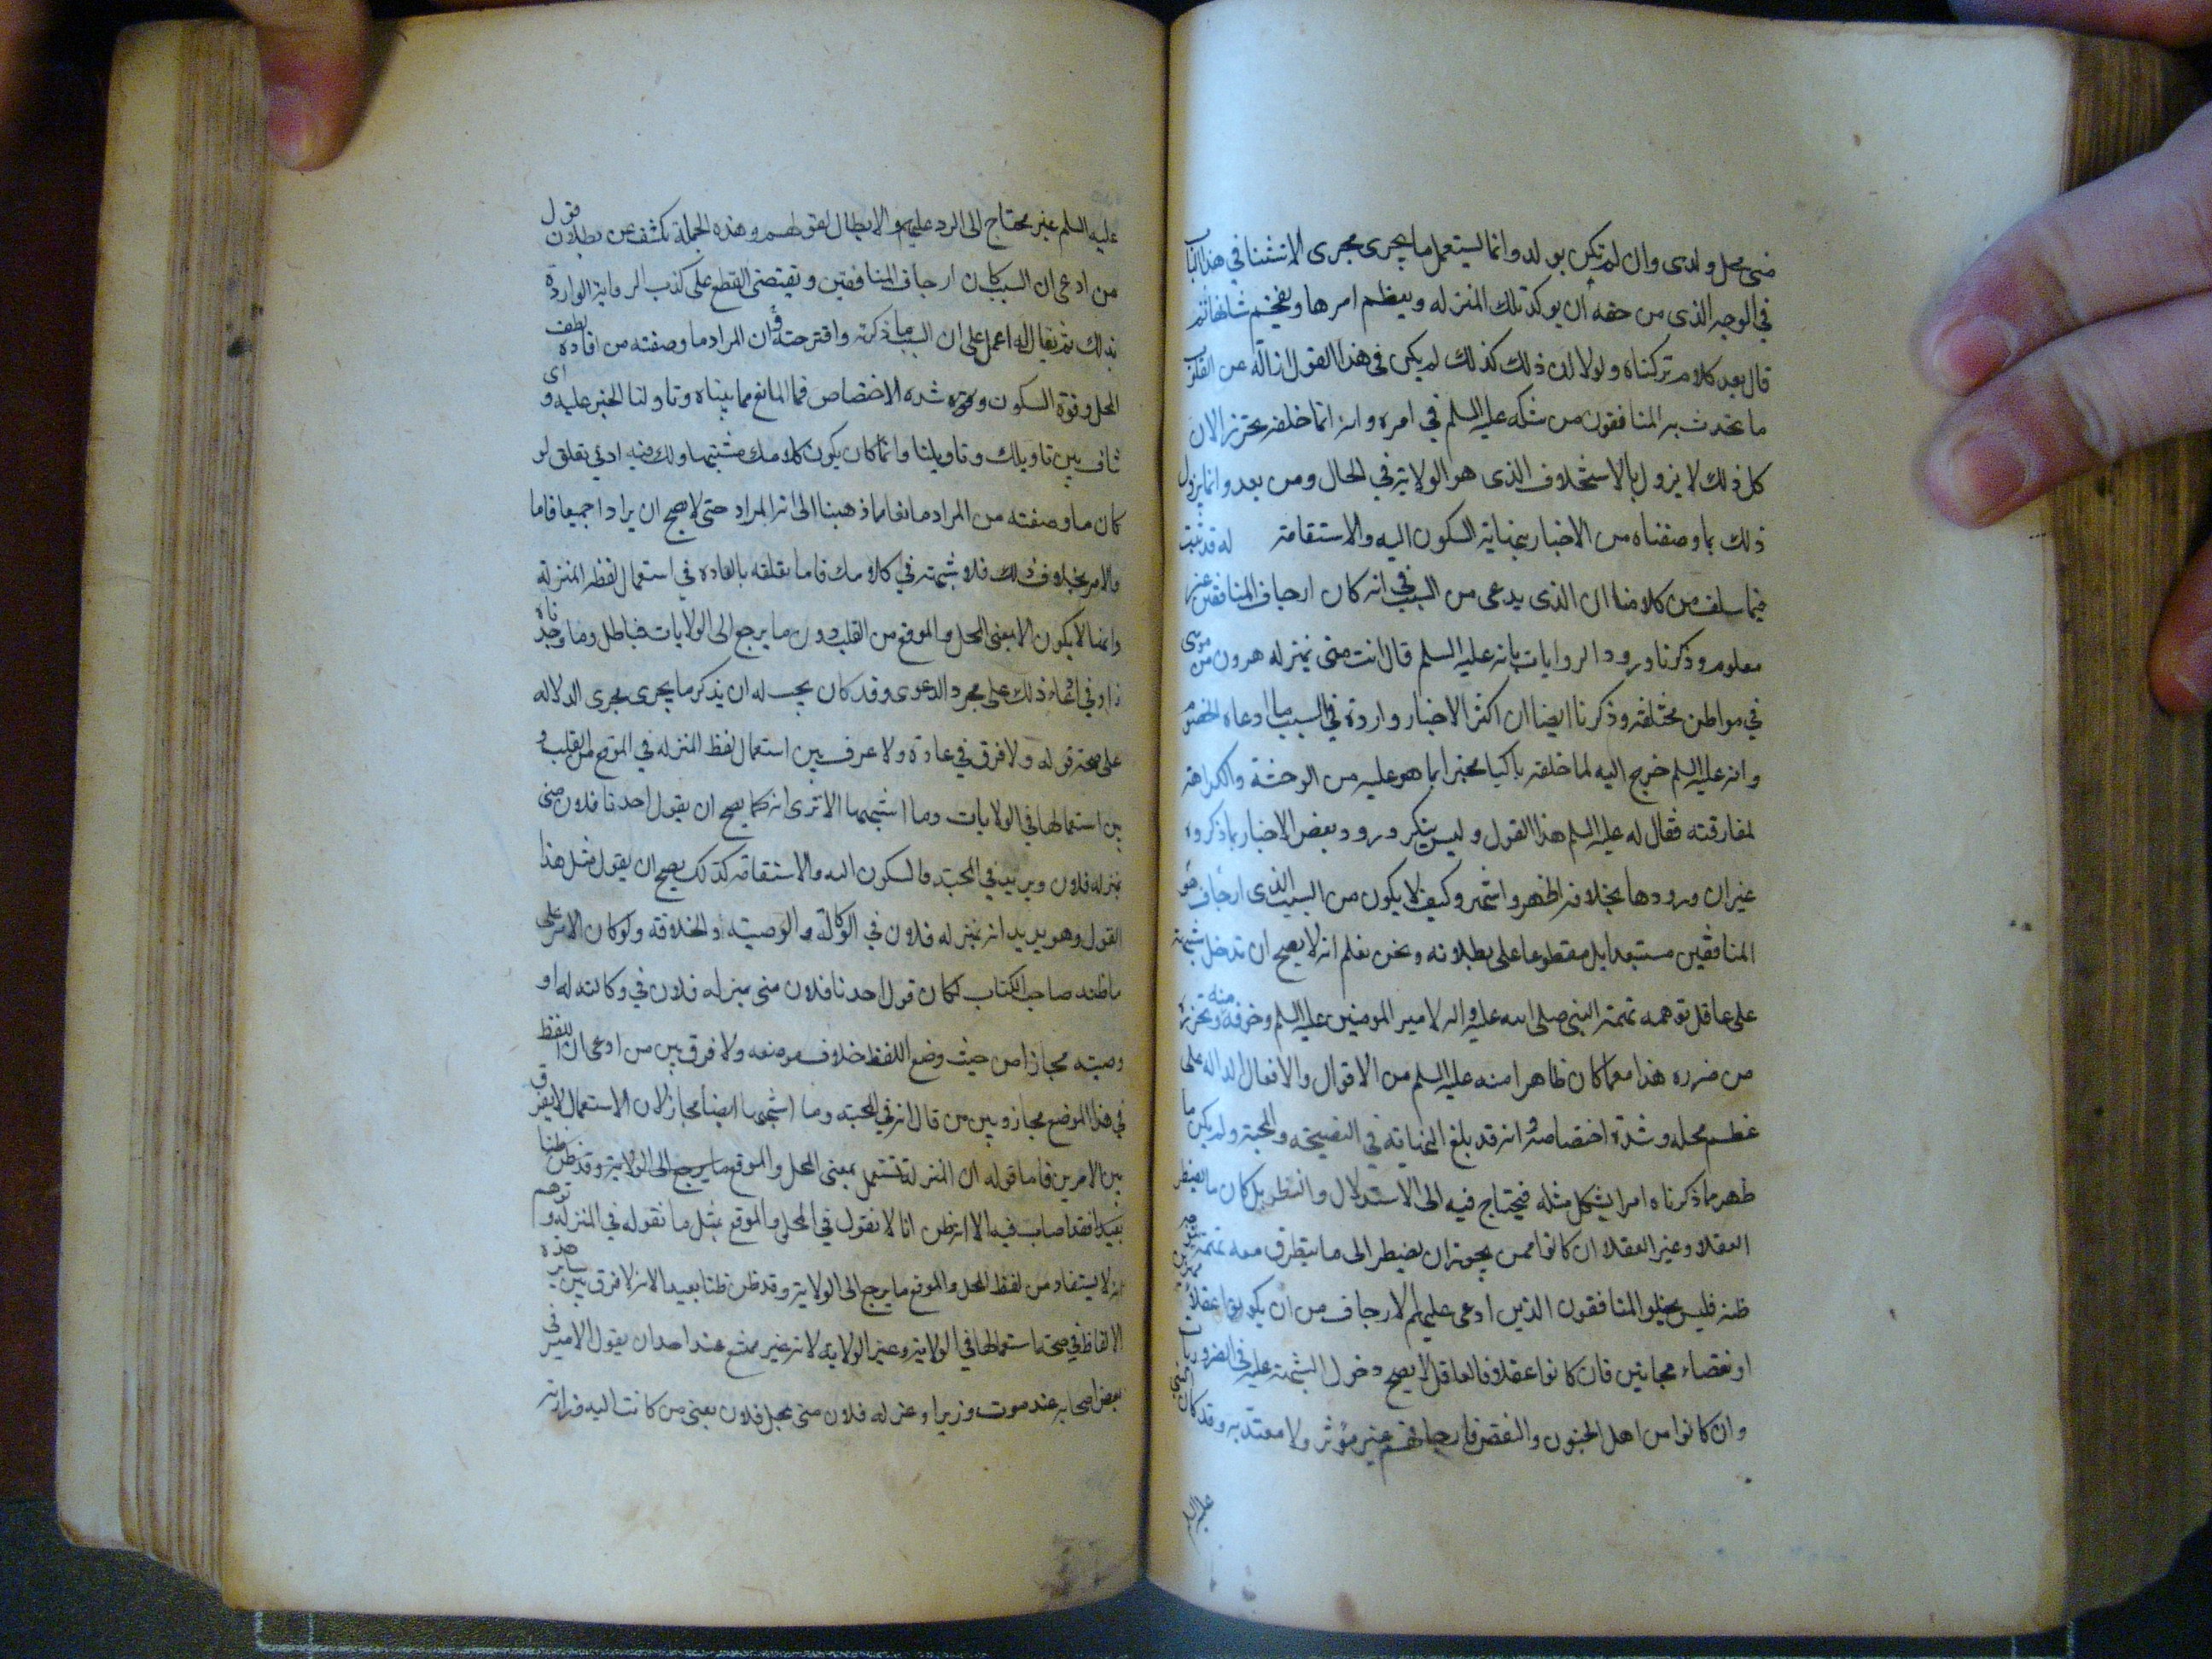 منى محل ولدى وان لم يكن بولد وانما يستعمل ما يجرى مجرى الاستثنا في هذا الباب
في الوجه الذى من حقه ان يوكد تلك المنزله ويعظم امرها ويفخم شانها ثم
قال بعد كلام تركناه ولولا ان ذلك كذلك لم يكن في هذا القول ازالة عن القلوب
ما تحدث به المنافقون من شكه عليه السلم في امره وانه انما خلفه تحرزا لان
كل ذلك لا يزول بالاستخلاف الذى هو الولاية في الحال ومن بعد وانما يزول
ذلك بما وصفناه من الاخبار بنهاية السكون اليه والاستقامة له قد ثبت
فيما سلف من كلامنا ان الذى يدعى من السبب في انه كان ارجاف المنافقين غير
معلوم وذكرنا ورود الروايات بانه عليه السلم قال انت منى بمنزله هرون من موسى
في مواطن مختلفة وذكرنا ايضا ان اكثر الاخبار واردة في السبب بما ادعاه الخصوم
وانه عليه السلم خرج اليه لما خلفه باكيا مخبرا بما هو عليه من الوحشة والكراهة
لمفارقته فقال له عليه السلم هذا القول وليس ينكر ورود بعض الاخبار بما ذكروه
غير ان ورودها بخلافه اظهر واشهر وكيف لا يكون من السبب الذى ارجاف هو
المنافقين مستبعدا بل مقطوعا على بطلانه ونحن نعلم انه لا يصح ان تدخل شبهة
على عاقل توهمه تهمة النبى صلى الله عليه واله لامير المومنين عليه السلم وخوفه منه وتحرزه
من ضرره هذا مع ما كان ظاهرا منه عليه السلم من الاقوال والافعال الداله على
عظم محله وشدة اختصاصه وانه قد بلغ النهاية في النصيحه والمحبة ولم يكن ما
ظهر مما ذكرناه امرا يشكل مثله فيحتاج فيه الى الاستدلال والنظر بل كان ما يضطر
العقلا وغير العقلا ان كانوا ممن يجوز ان يضطر الى ما يتطرق معه تهمة
ظنه فليس يخلو المنافقون الذين ادعى عليهم الارجاف من ان يكونوا عقلاء
او نقصاء مجانين فان كانوا عقلا فالعاقل لا يصح دخول الشبهة عليه في الضروريات
وان كانوا من اهل الجنون والنقص فارجافهم غير مؤثر ولا معتد به وقد كان
عليه السلم
عليه السلم غير محتاج الى الرد عليهم والابطال لقولهم وهذه الجملة تكشف عن بطلان قول
من ادعى ان السبب كان ارجاف المنافقين وتقتضى القطع على كذب الرواية الواردة
بذلك ثم يقال له اعمل على ان السبب ما ذكرته واقترحته وان المراد ما وصفته من افادة لطف
المحل وقوة السكون وشده الاختصاص فما المانع مما بيناه وتاولنا الخبر عليه واى
تناف بين تاويلك وتاويلنا وانما كان يكون كلامك مشتبها ولك فيه ادنى تعلق لو
كان ما وصفته من المراد مانعا مما ذهبنا الى انه المراد حتى لا يصح ان يرادا جميعا فاما
والامر بخلاف ذلك فلا شبهة في كلامك فاما تعلقه بالعاده في استعمال لفظ المنزله
وانها لا يكون الا بمعنى المحل والموقع من القلب دون ما يرجع الى الولايات فباطل وما وجدناه
زاد في ادعاء ذلك على مجرد الدعوى وقد كان يجب له ان يذكر ما يجرى مجرى الدلاله
على صحة قوله ولا فرق في عادة ولا عرف بين استعمال لفظ المنزله في الموقع من القلب و
بين استعمالها في الولايات وما اشبهها الا ترى انه كما يصح ان يقول احدنا فلان منى
بمنزله فلان ويريد في المحبة والسكون اليه والاستقامة كذلك يصح ان يقول مثل هذا
القول وهو يريد انه بمنزله فلان في الوكالة والوصيته والخلافه ولو كان الامر على
ما ظنه صاحب الكتاب لكان قول احدنا فلان منى بمنزله فلان في وكالته له او
وصيته مجازا من حيث وضع اللفظ خلاف موضعه ولا فرق بين من ادعى ان اللفظ
في هذا الموضع مجاز وبين من قال انه في المحبه وما اشبهها ايضا مجاز لان الاستعمال لا يفرق
بين الامرين فاما قوله ان المنزلة تستعمل بمعنى المحل والموقع ما يرجع الى الولاية وقد ظن ظنا
بعيدا فقد اصاب فيه الا انه ظن انا لا نقول في المحل والموقع بمثل ما نقوله في المنزله وتوهم
انه لا يستفاد من لفظ المحل والموقع ما يرجع الى الولاية وقد ظن ظنا بعيدا لانه لا فرق بين ساير هذه
الالفاظ في صحة استعمالها في الولاية وغير الولاية لانه غير ممتنع عند احد ان يقول الامير في
بعض اصحابه عند موت وزير او عزله فلان منى بمحل فلان يعنى من كانت اليه وزارته